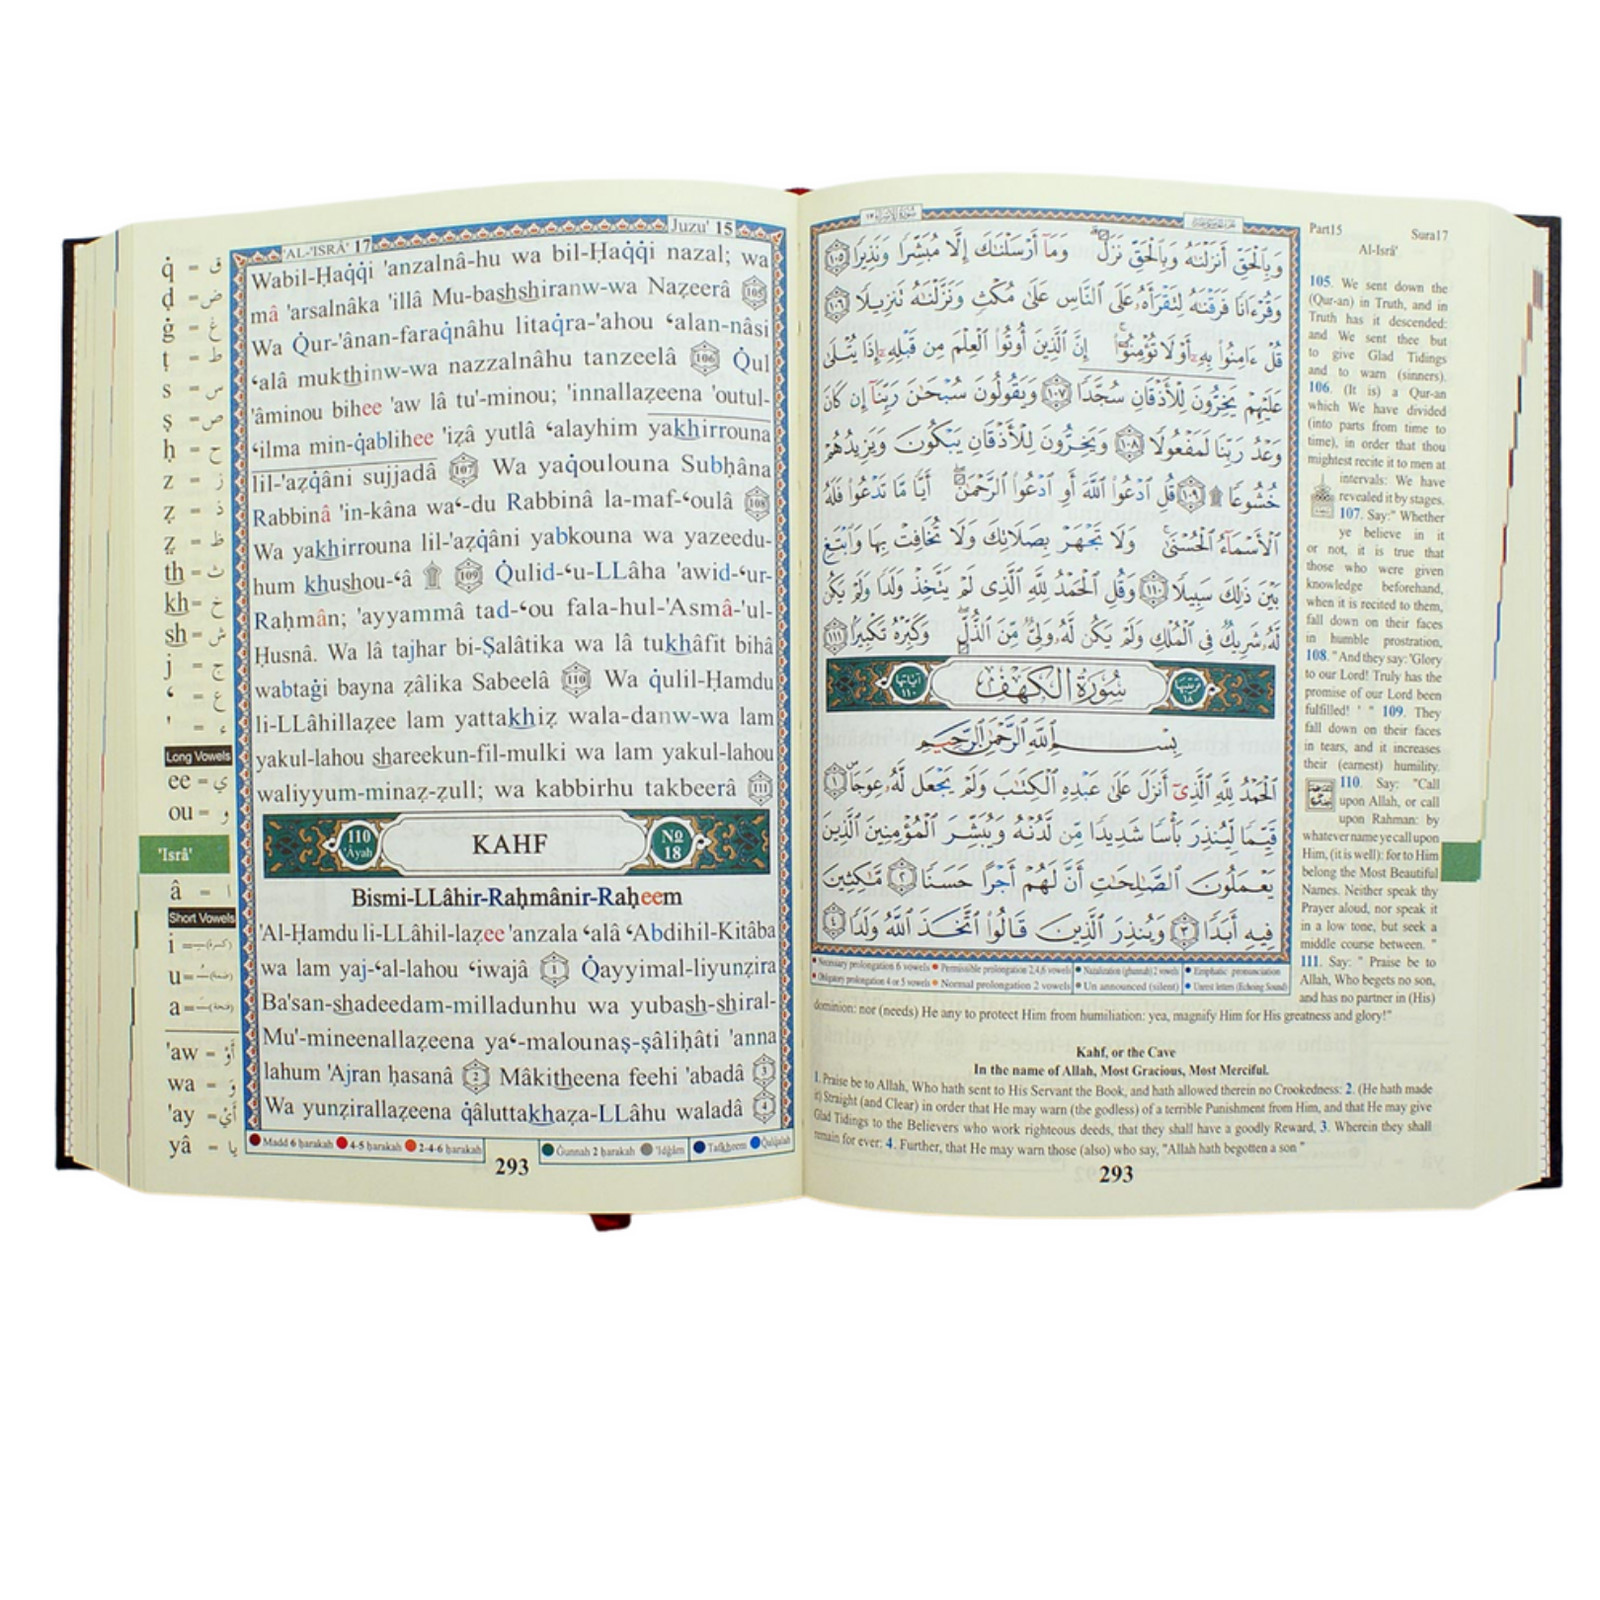 'AL-'ISRÂ' 17
Juzu' 15
q̇ = ق
ḍ = ض
ġ = غ
ṭ = ط
s = س
ṣ = ص
ḥ = ح
z = ز
ẓ = ذ
ẓ = ظ
th = ث
kh = خ
sh = ش
j = ج
‘ = ع
' = ء
Long Vowels
ee = ي
ou = و
'Isrâ'
â = ا
Short Vowels
i =
u =
a =
'aw = أَوْ
wa = وَ
'ay = أَيْ
yâ = يا
Wabil-Ḥaq̇q̇i 'anzalnâ-hu wa bil-Ḥaq̇q̇i nazal; wa
mâ 'arsalnâka 'illâ Mu-bashshiranw-wa Naẓeerâ 105
Wa Q̇ur-'ânan-faraq̇nâhu litaq̇ra-'ahou ‘alan-nâsi
‘alâ mukthinw-wa nazzalnâhu tanzeelâ 106 Q̇ul
'âminou bihee 'aw lâ tu'-minou; 'innallaẓeena 'outul-
‘ilma min-q̇ablihee 'iẓâ yutlâ ‘alayhim yakhirrouna
lil-'aẓq̇âni sujjadâ 107 Wa yaq̇oulouna Subḥâna
Rabbinâ 'in-kâna wa‘-du Rabbinâ la-maf-‘oulâ 108
Wa yakhirrouna lil-'aẓq̇âni yabkouna wa yazeedu-
hum khushou-‘â ۩ 109 Q̇ulid-‘u-LLâha 'awid-‘ur-
Raḥmân; 'ayyammâ tad-‘ou fala-hul-'Asmâ-'ul-
Ḥusnâ. Wa lâ tajhar bi-Ṣalâtika wa lâ tukhâfit bihâ
wabtaġi bayna ẓâlika Sabeelâ 110 Wa q̇ulil-Ḥamdu
li-LLâhillaẓee lam yattakhiẓ wala-danw-wa lam
yakul-lahou shareekun-fil-mulki wa lam yakul-lahou
waliyyum-minaẓ-ẓull; wa kabbirhu takbeerâ 111
110 'Âyah KAHF No 18
Bismi-LLâhir-Raḥmânir-Raḥeem
'Al-Ḥamdu li-LLâhil-laẓee 'anzala ‘alâ ‘Abdihil-Kitâba
wa lam yaj-‘al-lahou ‘iwajâ 1 Q̇ayyimal-liyunẓira
Ba'san-shadeedam-milladunhu wa yubash-shiral-
Mu'-mineenallaẓeena ya‘-malounaṣ-ṣâliḥâti 'anna
lahum 'Ajran ḥasanâ 2 Mâkitheena feehi 'abadâ 3
Wa yunẓirallaẓeena q̇âluttakhaẓa-LLâhu waladâ 4
Madd 6 ḥarakah 4-5 ḥarakah 2-4-6 ḥarakah Ġunnah 2 ḥarakah 'Idġâm Tafkheem Q̇alq̇alah
293
سُورَةُ الإِسْرَاءِ ١٧
وَبِٱلْحَقِّ أَنزَلْنَٰهُ وَبِٱلْحَقِّ نَزَلَ ۗ وَمَآ أَرْسَلْنَٰكَ إِلَّا مُبَشِّرًا وَنَذِيرًا ١٠٥
وَقُرْءَانًا فَرَقْنَٰهُ لِتَقْرَأَهُۥ عَلَى ٱلنَّاسِ عَلَىٰ مُكْثٍ وَنَزَّلْنَٰهُ تَنزِيلًا ١٠٦
قُلْ ءَامِنُوا۟ بِهِۦٓ أَوْ لَا تُؤْمِنُوٓا۟ ۚ إِنَّ ٱلَّذِينَ أُوتُوا۟ ٱلْعِلْمَ مِن قَبْلِهِۦٓ إِذَا يُتْلَىٰ
عَلَيْهِمْ يَخِرُّونَ لِلْأَذْقَانِ سُجَّدًا ١٠٧ وَيَقُولُونَ سُبْحَٰنَ رَبِّنَآ إِن كَانَ
وَعْدُ رَبِّنَا لَمَفْعُولًا ١٠٨ وَيَخِرُّونَ لِلْأَذْقَانِ يَبْكُونَ وَيَزِيدُهُمْ
خُشُوعًا ۩ ١٠٩ قُلِ ٱدْعُوا۟ ٱللَّهَ أَوِ ٱدْعُوا۟ ٱلرَّحْمَٰنَ ۖ أَيًّا مَّا تَدْعُوا۟ فَلَهُ
ٱلْأَسْمَآءُ ٱلْحُسْنَىٰ ۚ وَلَا تَجْهَرْ بِصَلَاتِكَ وَلَا تُخَافِتْ بِهَا وَٱبْتَغِ
بَيْنَ ذَٰلِكَ سَبِيلًا ١١٠ وَقُلِ ٱلْحَمْدُ لِلَّهِ ٱلَّذِى لَمْ يَتَّخِذْ وَلَدًا وَلَمْ يَكُن
لَّهُۥ شَرِيكٌ فِى ٱلْمُلْكِ وَلَمْ يَكُن لَّهُۥ وَلِىٌّ مِّنَ ٱلذُّلِّ ۖ وَكَبِّرْهُ تَكْبِيرًۢا ١١١
ترتيبها ١٨ سُورَةُ الكَهْفِ آياتها ١١٠
بِسْمِ ٱللَّهِ ٱلرَّحْمَٰنِ ٱلرَّحِيمِ
ٱلْحَمْدُ لِلَّهِ ٱلَّذِىٓ أَنزَلَ عَلَىٰ عَبْدِهِ ٱلْكِتَٰبَ وَلَمْ يَجْعَل لَّهُۥ عِوَجَا ۜ ١
قَيِّمًا لِّيُنذِرَ بَأْسًا شَدِيدًا مِّن لَّدُنْهُ وَيُبَشِّرَ ٱلْمُؤْمِنِينَ ٱلَّذِينَ
يَعْمَلُونَ ٱلصَّٰلِحَٰتِ أَنَّ لَهُمْ أَجْرًا حَسَنًا ٢ مَّٰكِثِينَ
فِيهِ أَبَدًا ٣ وَيُنذِرَ ٱلَّذِينَ قَالُوا۟ ٱتَّخَذَ ٱللَّهُ وَلَدًا ٤
Necessary prolongation 6 vowels Permissible prolongation 2,4,6 vowels Nazalization (ghunnah) 2 vowels Emphatic pronunciation
Obligatory prolongation 4 or 5 vowels Normal prolongation 2 vowels Un announced (silent) Unrest letters (Echoing Sound)
Part15 Sura17
Al-Isrâ'
105. We sent down the
(Qur-an) in Truth, and in
Truth has it descended:
and We sent thee but
to give Glad Tidings
and to warn (sinners).
106. (It is) a Qur-an
which We have divided
(into parts from time to
time), in order that thou
mightest recite it to men at
intervals: We have
revealed it by stages.
107. Say:" Whether
ye believe in it
or not, it is true that
those who were given
knowledge beforehand,
when it is recited to them,
fall down on their faces
in humble prostration,
108. "And they say: 'Glory
to our Lord! Truly has the
promise of our Lord been
fulfilled! ' " 109. They
fall down on their faces
in tears, and it increases
their (earnest) humility.
110. Say: "Call
upon Allah, or call
upon Rahman: by
whatever name ye call upon
Him, (it is well): for to Him
belong the Most Beautiful
Names. Neither speak thy
Prayer aloud, nor speak it
in a low tone, but seek a
middle course between. "
111. Say: " Praise be to
Allah, Who begets no son,
and has no partner in (His)
dominion: nor (needs) He any to protect Him from humiliation: yea, magnify Him for His greatness and glory!"
Kahf, or the Cave
In the name of Allah, Most Gracious, Most Merciful.
1. Praise be to Allah, Who hath sent to His Servant the Book, and hath allowed therein no Crookedness: 2. (He hath made
it) Straight (and Clear) in order that He may warn (the godless) of a terrible Punishment from Him, and that He may give
Glad Tidings to the Believers who work righteous deeds, that they shall have a goodly Reward, 3. Wherein they shall
remain for ever: 4. Further, that He may warn those (also) who say, "Allah hath begotten a son "
293